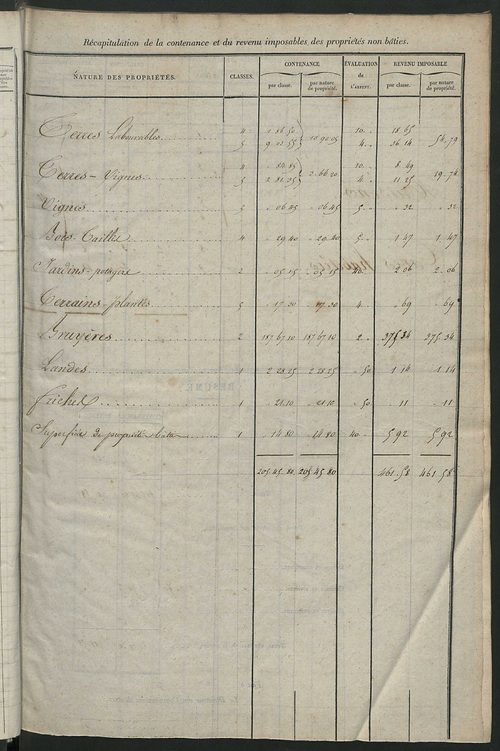 Récapitulation de la contenance et du revenu imposables des propriétés non bâties.
NATURE DES PROPRIÉTÉS. CLASSES. CONTENANCE ÉVALUATION de L'ARPENT. REVENU IMPOSABLE
par classe. par nature de propriété. par classe. par nature de propriété.
Terres Labourables 4 10 18 65
5 9 02 65 10 90 05 4 36 14 54 79
Terres-Vignes 4 10 8 49
5 2 81 35 4 11 25 19 74
Vignes 5 06 45 06 45 5 32 32
Bois Taillis 4 29 40 29 40 5 1 47 1 47
Jardins-potagers 2 05 15 05 15 40 2 06 2 06
Terrains plantés 5 17 20 17 20 4 69 69
Bruyères 2 187 67 10 187 67 10 2 375 34 375 34
Landes 1 2 28 25 2 28 25 50 1 14
Friches 1 21 10 21 10 50 11 11
Superficie de propriétés bâties 1 14 80 14 80 40 5 92 5 92
205 45 80 205 45 80 461 58 461 58